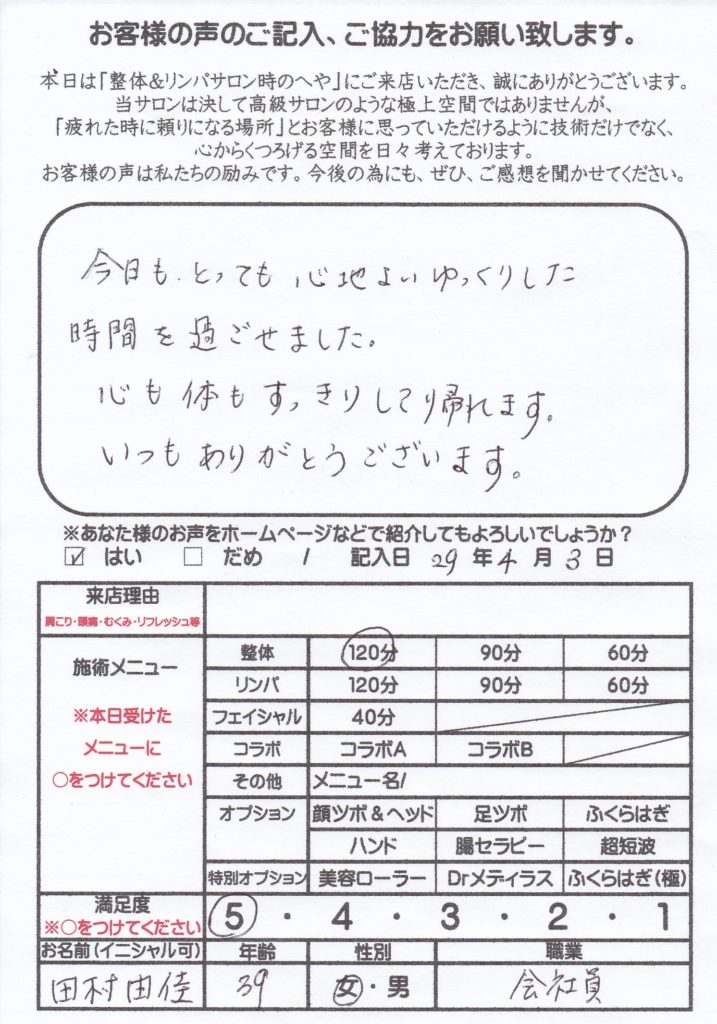 お客様の声のご記入、ご協力をお願い致します。
本日は「整体&リンパサロン時のへや」にご来店いただき、誠にありがとうございます。
当サロンは決して高級サロンのような極上空間ではありませんが、
「疲れた時に頼りになる場所」とお客様に思っていただけるように技術だけでなく、
心からくつろげる空間を日々考えております。
お客様の声は私たちの励みです。今後の為にも、ぜひ、ご感想を聞かせてください。
今日も とっても 心地よいゆっくりした
時間を過ごせました。
心も体もすっきりして帰れます。
いつもありがとうございます。
※あなた様のお声をホームページなどで紹介してもよろしいでしょうか?
☑ はい □ だめ / 記入日 29 年 4 月 3 日
来店理由
肩こり・頭痛・むくみ・リフレッシュ等
施術メニュー
※本日受けた
メニューに
○をつけてください
整体 120分 90分 60分
リンパ 120分 90分 60分
フェイシャル 40分
コラボ コラボA コラボB
その他 メニュー名/
オプション 顔ツボ&ヘッド 足ツボ ふくらはぎ
ハンド 腸セラピー 超短波
特別オプション 美容ローラー Drメディラス ふくらはぎ(極)
満足度
※○をつけてください
5・4・3・2・1
お名前(イニシャル可) 年齢 性別 職業
田村由佳 39 女・男 会社員